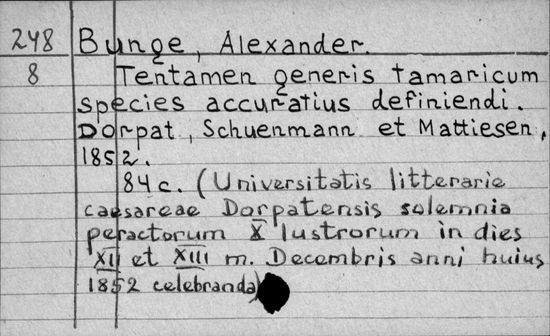 248 Bunge, Alexander.
8 Tentamen generis tamaricum
species accuratius definiendi.
Dorpat, Schuenmann et Mattiesen,
1852.
84 c. (Universitatis litterarie
caesareae Dorpatensis solemnia
peractorum X lustrorum in dies
XII et XIII m. Decembris anni huius
1852 celebranda)